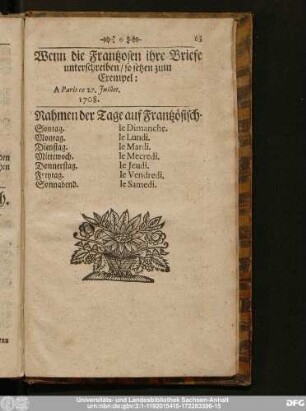 63
Wenn die Frantzosen ihre Briefe
unterschreiben / so setzen zum
Exempel:
A Paris ce 27. Juillet.
1708.
Nahmen der Tage auf Frantzösisch.
Sontag. le Dimanche.
Montag. le Lundi.
Dienstag. le Mardi.
Mittewoch. le Mecredi.
Donnerstag. le Jeudi.
Freytag. le Vendredi.
Sonnabend. le Samedi.
Universitäts- und Landesbibliothek Sachsen-Anhalt
urn:nbn:de:gbv:3:1-1192015415-172283396-15
DFG